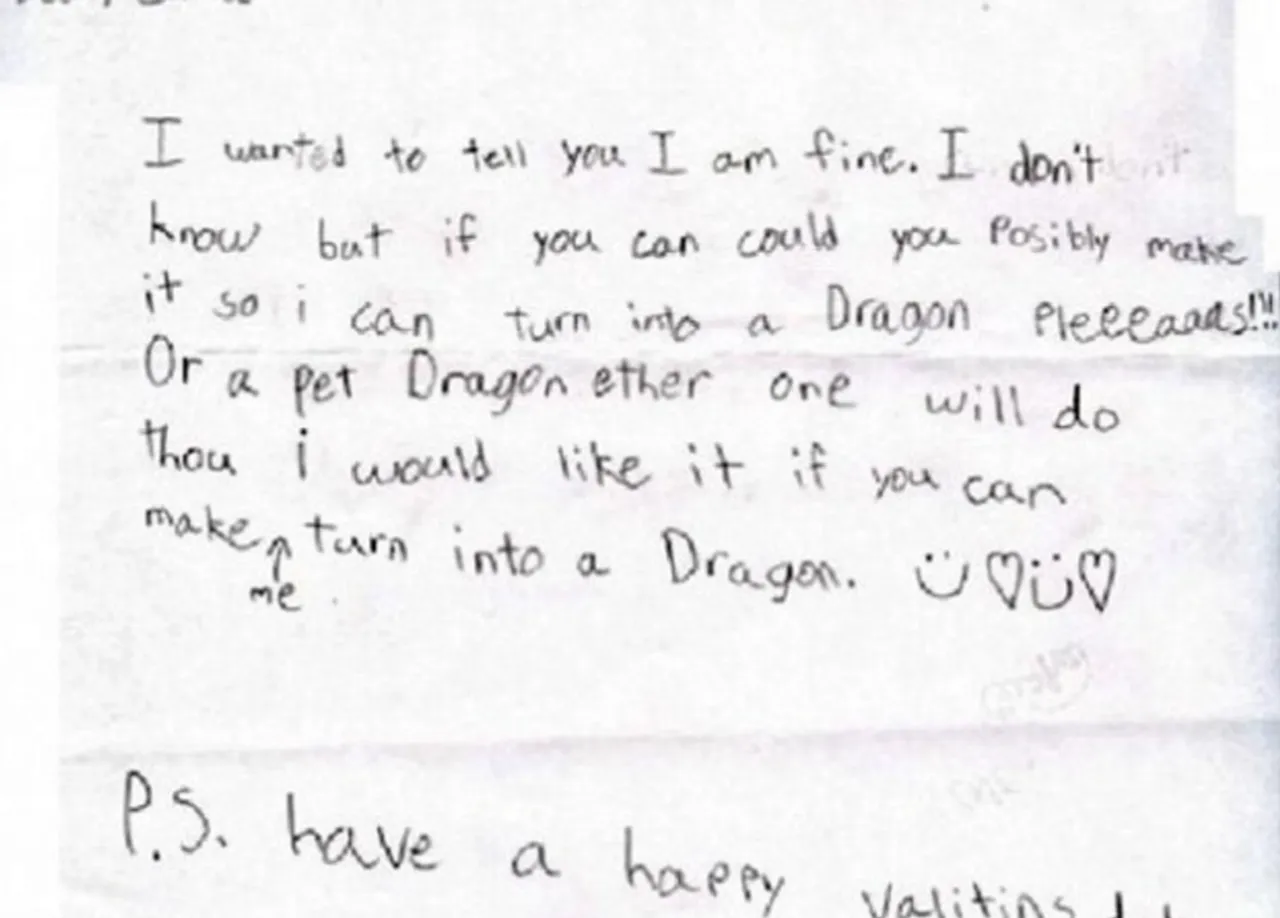 I wanted to tell you I am fine. I don't
know but if you can could you Posibly make
it so i can turn into a Dragon Pleeeaaas!!!
Or a pet Dragon ether one will do
thou i would like it if you can
make turn into a Dragon. ü♡ü♡
me
P.S. have a happy valitins